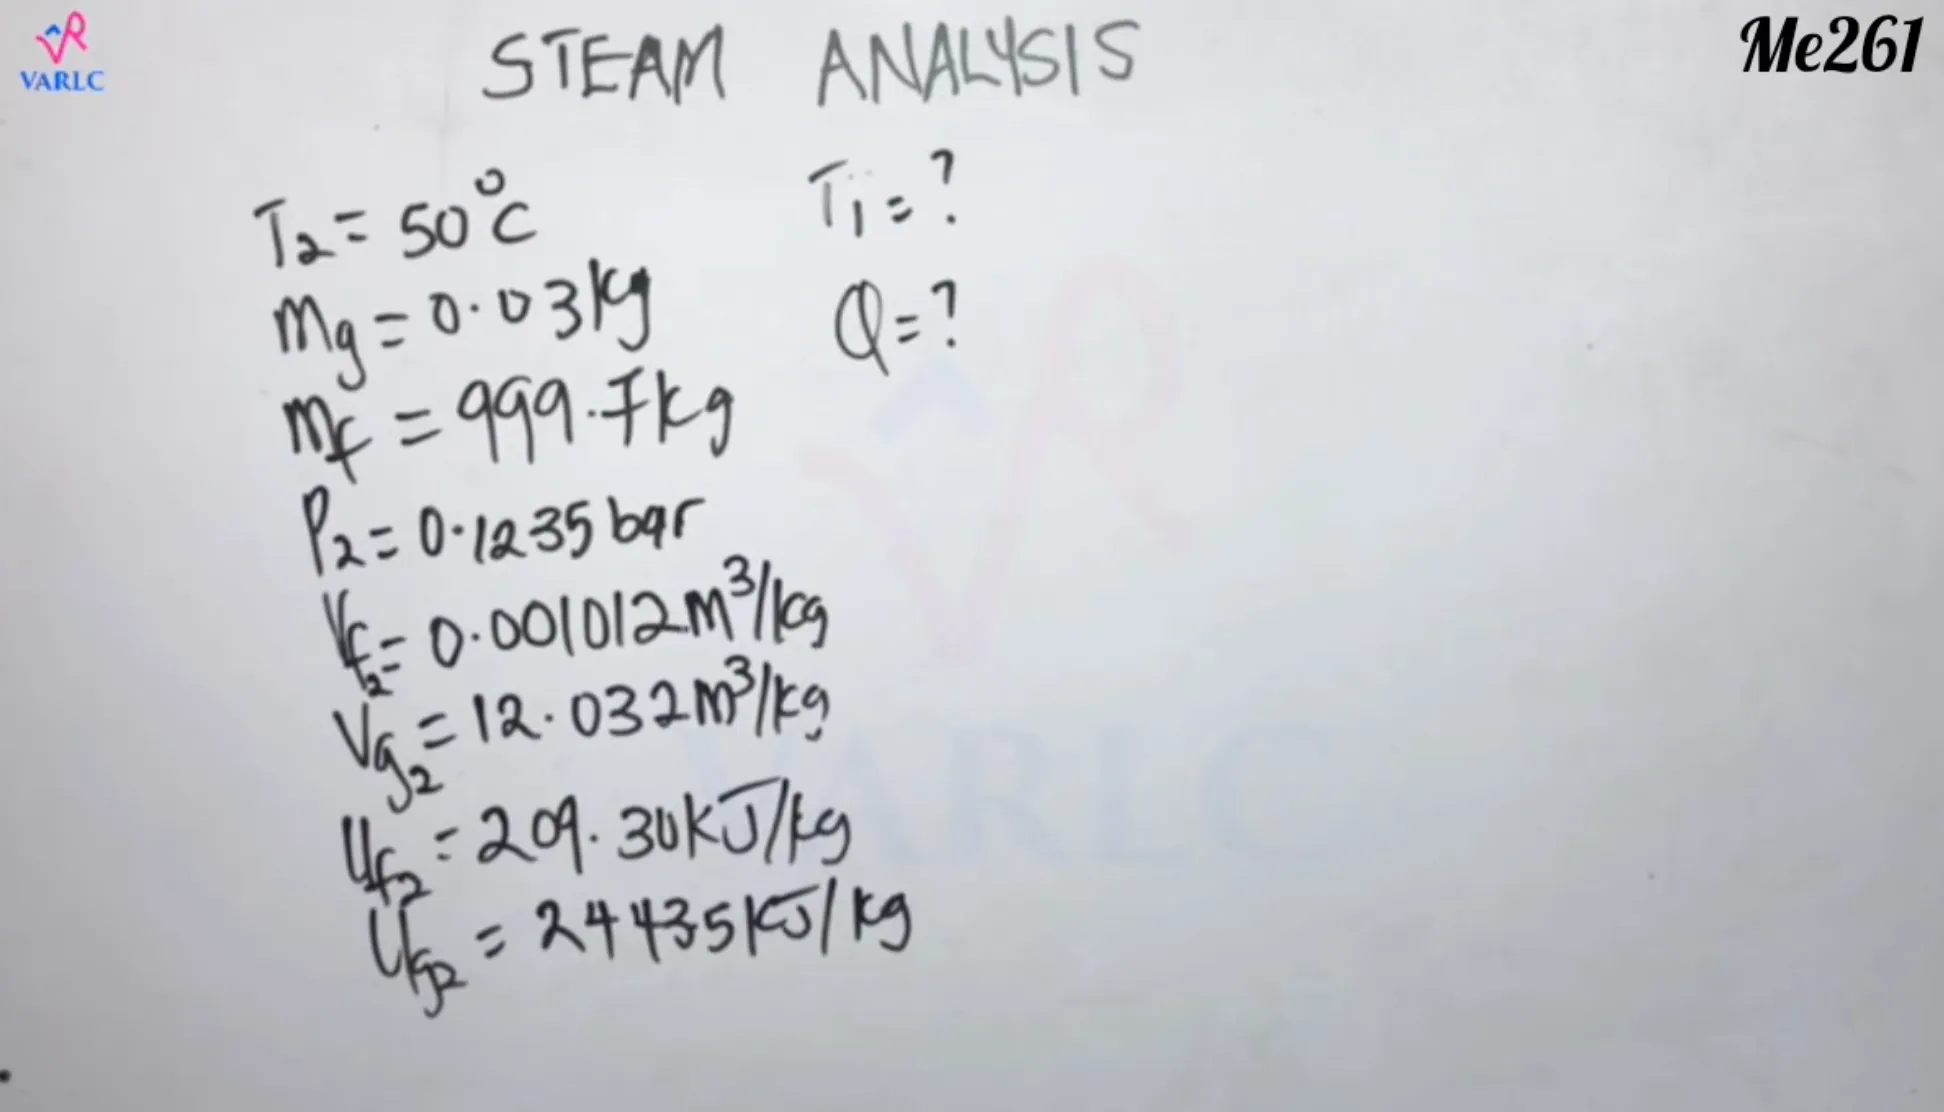 VARLC
STEAM ANALYSIS
Me261
T₂ = 50°C
mg = 0.03kg
mf = 999.7kg
P₂ = 0.1235bar
Vf₂ = 0.001012m³/kg
Vg₂ = 12.032m³/kg
Uf₂ = 209.30kJ/kg
Ug₂ = 2443.5kJ/kg
T₁ = ?
Q = ?
VARLC